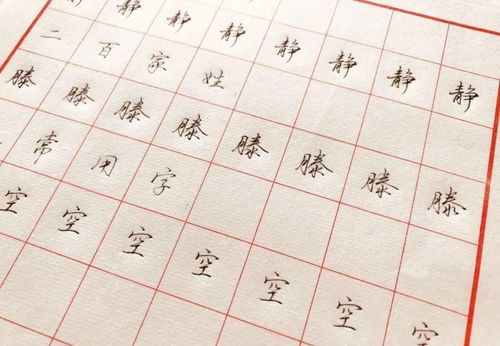 静静静静静静静静
二百家姓
滕滕滕滕滕滕滕滕
常用字
空空空空空空空